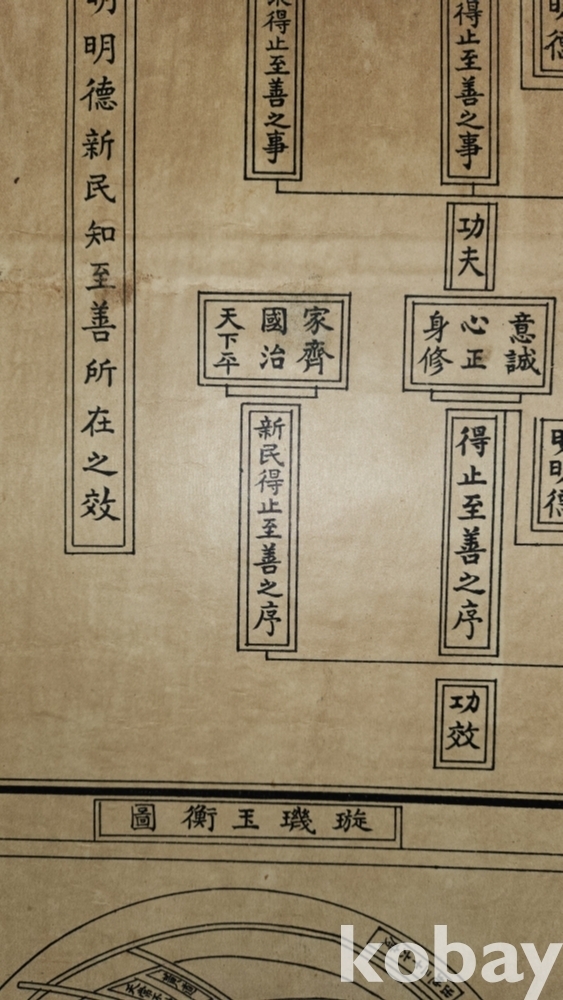 明德
得止至善之事
得止至善之事
明明德新民知至善所在之效
功夫
意誠
心正
身修
家齊
國治
天下平
得止至善之序
新民得止至善之序
功效
璇璣玉衡圖
kobay